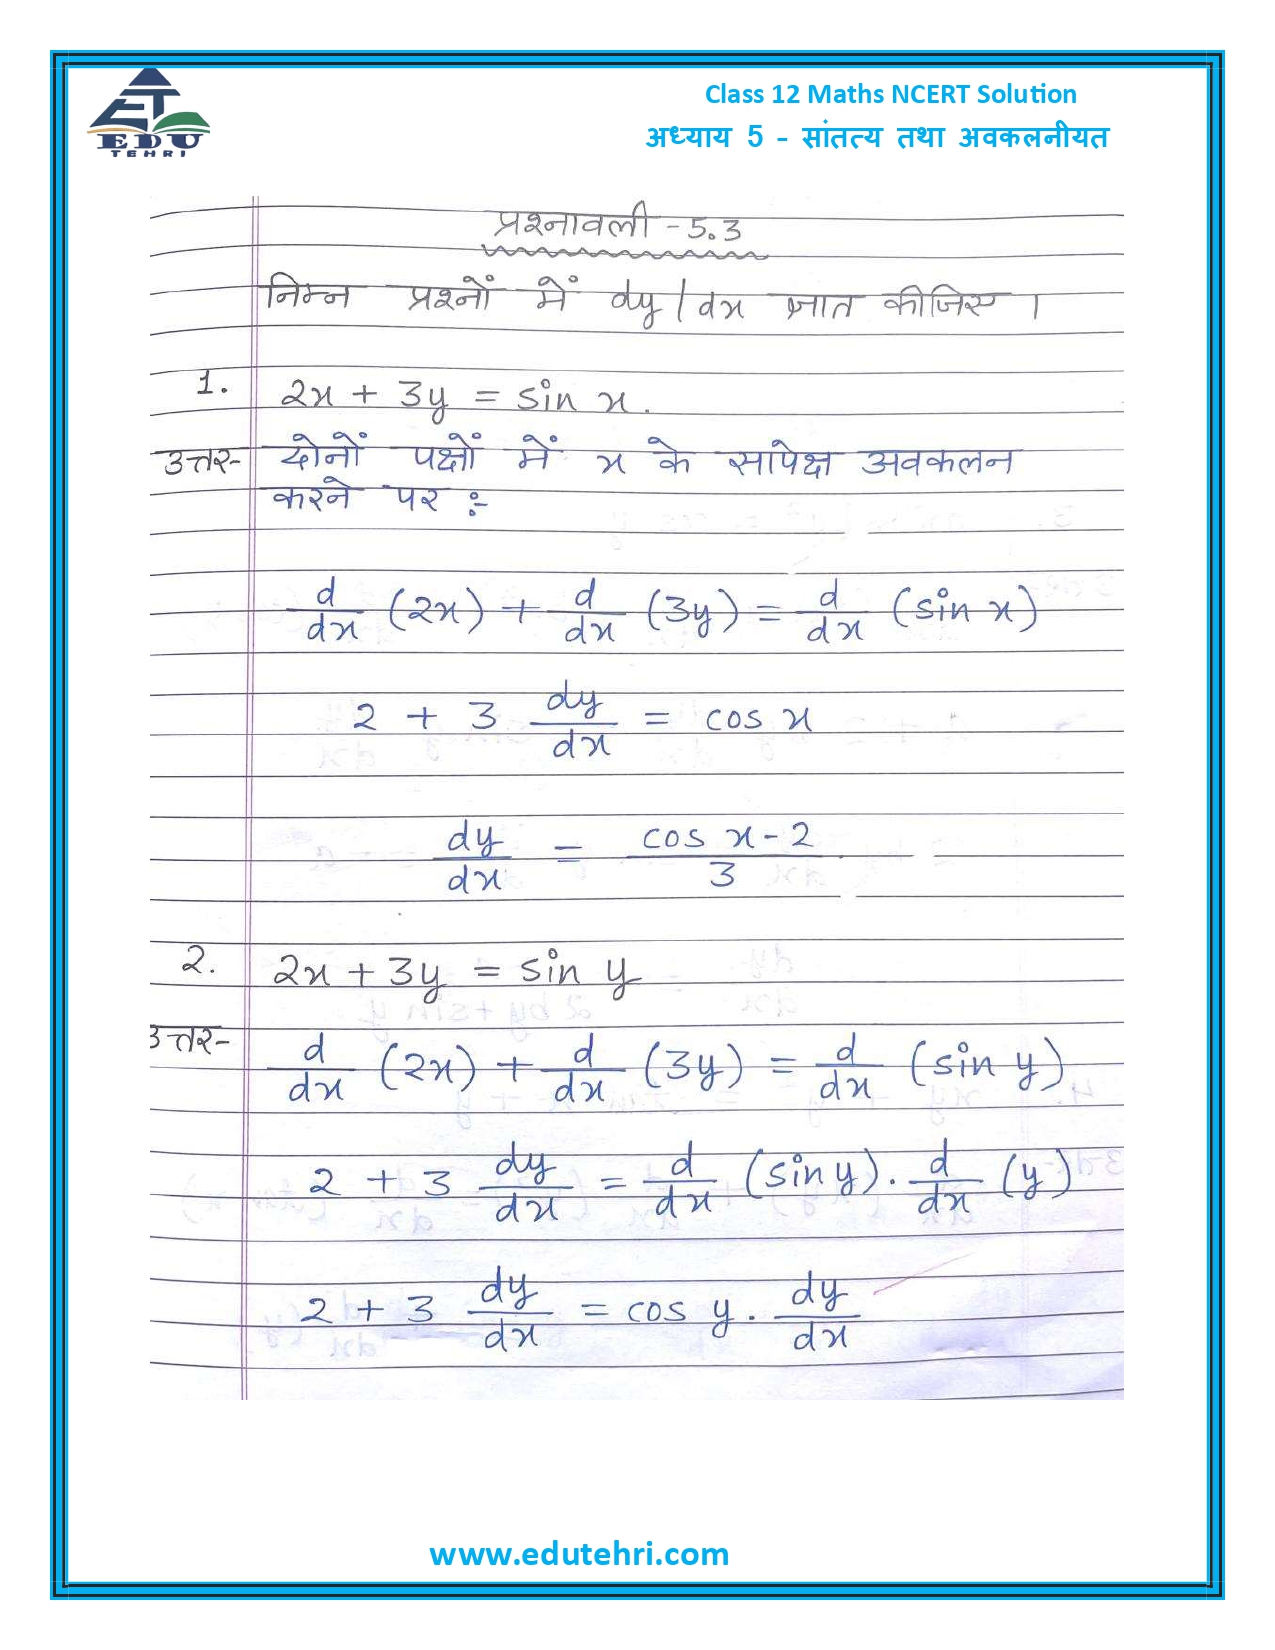 EDU
TEHRI
Class 12 Maths NCERT Solution
अध्याय 5 - सांतत्य तथा अवकलनीयत
प्रश्नावली - 5.3
निम्न प्रश्नों में dy/dx ज्ञात कीजिए ।
1. 2x + 3y = sin x.
उत्तर- दोनों पक्षों में x के सापेक्ष अवकलन
करने पर :-
d/dx (2x) + d/dx (3y) = d/dx (sin x)
2 + 3 dy/dx = cos x
dy/dx = cos x - 2 / 3
2. 2x + 3y = sin y
उत्तर- d/dx (2x) + d/dx (3y) = d/dx (sin y)
2 + 3 dy/dx = d/dx (sin y) . d/dx (y)
2 + 3 dy/dx = cos y . dy/dx
www.edutehri.com